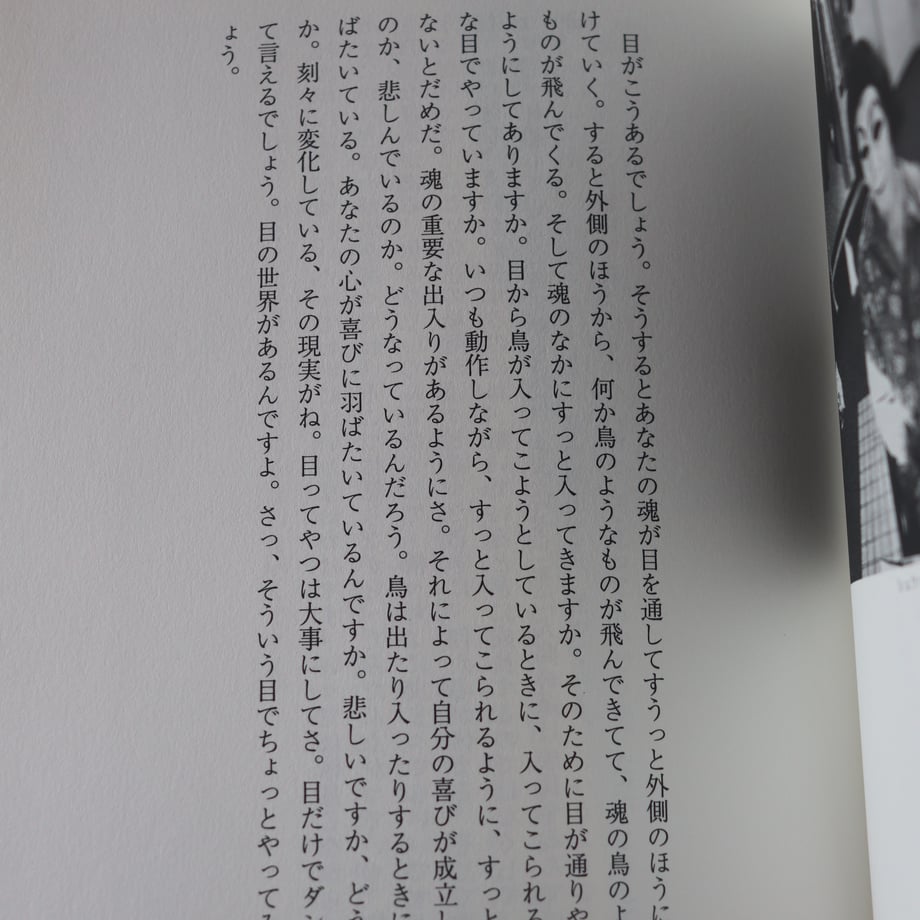 目がこうあるでしょう。そうするとあなたの魂が目を通してすうっと外側のほうに
けていく。すると外側のほうから、何か鳥のようなものが飛んできてて、魂の鳥のよ
ものが飛んでくる。そして魂のなかにすっと入ってきますか。そのために目が通りや
ようにしてありますか。目から鳥が入ってこようとしているときに、入ってこられる
な目でやっていますか。いつも動作しながら、すっと入ってこられるように、すっと
ないとだめだ。魂の重要な出入りがあるようにさ。それによって自分の喜びが成立し
のか、悲しんでいるのか。どうなっているんだろう。鳥は出たり入ったりするときに
ばたいている。あなたの心が喜びに羽ばたいているんですか。悲しいですか、どう
か。刻々に変化している、その現実がね。目ってやつは大事にしてさ。目だけでダン
て言えるでしょう。目の世界があるんですよ。さっ、そういう目でちょっとやってみ
ょう。